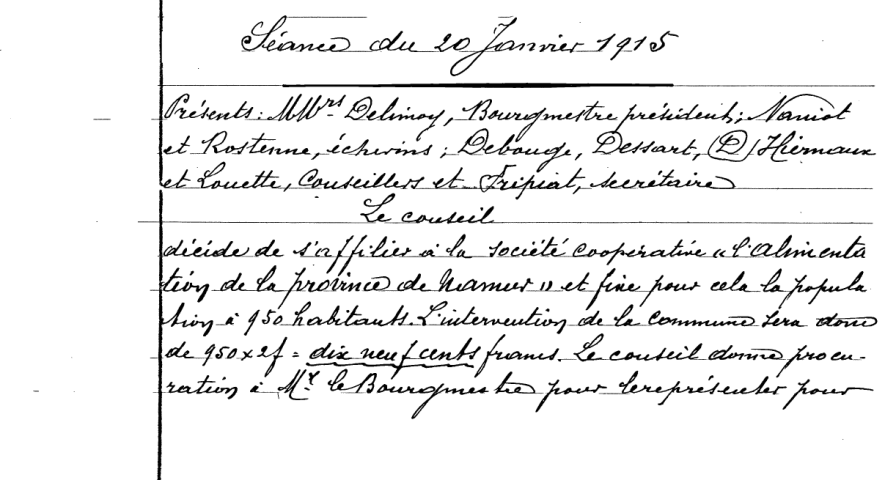 Séance du 20 Janvier 1915
Présents: MMrs Delimoy, Bourgmestre président; Naniot
et Rostenne, échevins; Debouge, Dessart, (D) Hiernaux
et Louette, Conseillers et Fripiat, secrétaire
Le conseil
décide de s'affilier à la société coopérative "l'alimenta
tion de la province de Namur" et fixe pour cela la popula
tion à 950 habitants. L'intervention de la commune sera donc
de 950 x 2f = dix neuf cents francs. Le conseil donne procu-
ration à Mr le Bourgmestre pour le représenter pour